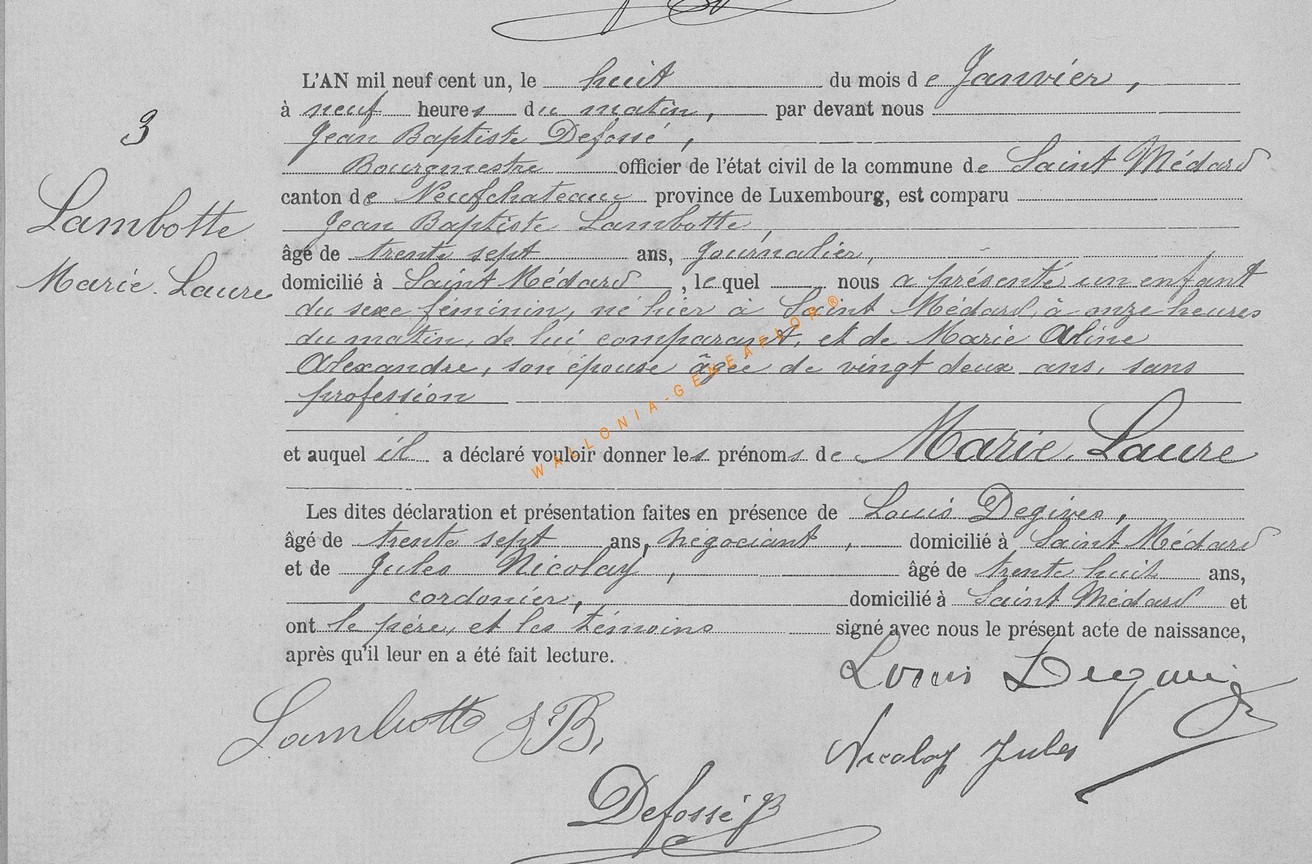 3
Lambotte
Marie Laure
L'AN mil neuf cent un, le huit du mois de Janvier,
à neuf heures du matin, par devant nous
Jean Baptiste Defossé,
Bourgmestre officier de l'état civil de la commune de Saint Médard
canton de Neufchateau province de Luxembourg, est comparu
Jean Baptiste Lambotte,
âgé de trente sept ans, journalier,
domicilié à Saint Médard, lequel nous a présenté un enfant
du sexe féminin, né hier à Saint Médard, à onze heures
du matin, de lui comparant, et de Marie Aline
Alexandre, son épouse âgée de vingt deux ans, sans
profession
et auquel il a déclaré vouloir donner les prénoms de Marie Laure
Les dites déclaration et présentation faites en présence de Louis Degives,
âgé de trente sept ans, négociant, domicilié à Saint Médard
et de Jules Nicolay, âgé de trente huit ans,
cordonier, domicilié à Saint Médard et
ont le père, et les témoins signé avec nous le présent acte de naissance,
après qu'il leur en a été fait lecture.
Louis
Lambotte J B,
Nicolay Jules
Defossé JB
WALLONIA-GENEAFLOR®